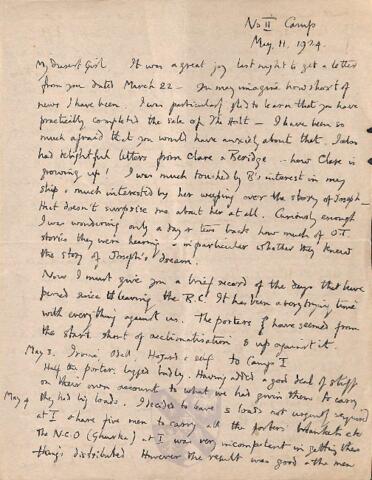 No II Camp
May. 11. 1924.
My dearest Girl It was a great joy last night to get a letter
from you dated March 22 – You may imagine how short of
news I have been. I was particularly glad to learn that you have
practically completed the sale of The Holt – I have been so
much afraid that you would have anxiety about that. I also
had delightful letters from Clare & Beridge – how Clare is
growing up! I was much touched by B's interest in my
ship & much interested by her weeping over the story of Joseph –
that doesn't surprise me about her at all. Curiously enough
I was wondering only a day or two back how much of O T
stories they were hearing & in particular whether they knew
the story of Joseph's dream!
Now I must give you a brief record of the days that have
passed since leaving the B.C. It has been a very trying time
with everything against us. The porters have seemed from
the start short of acclimatisation & up against it.
May 3. Irvine, Odell, Hazard & self to Camp I
Half the porters lagged badly. Having added a good deal of stuff
on their own account to what we had given them to carry
they had big loads.
May 4 I decided to leave 5 loads not urgently required
at I & have five men to carry all the porters' blankets etc
The N.C.O (Ghurka) at I was very incompetent in getting these
things distributed However the result was good & the men